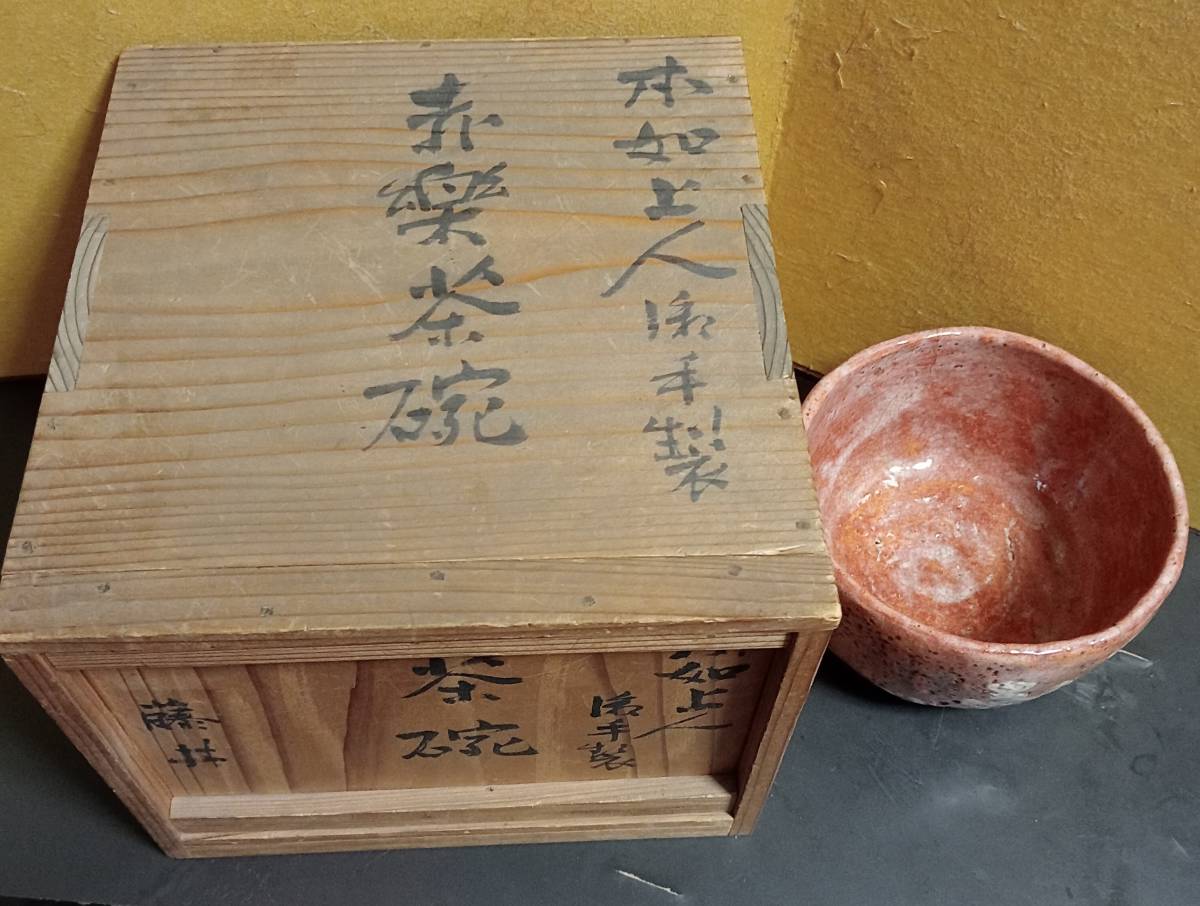 本如上人御手製
赤樂茶碗
如上人
御手製
茶碗
藤井